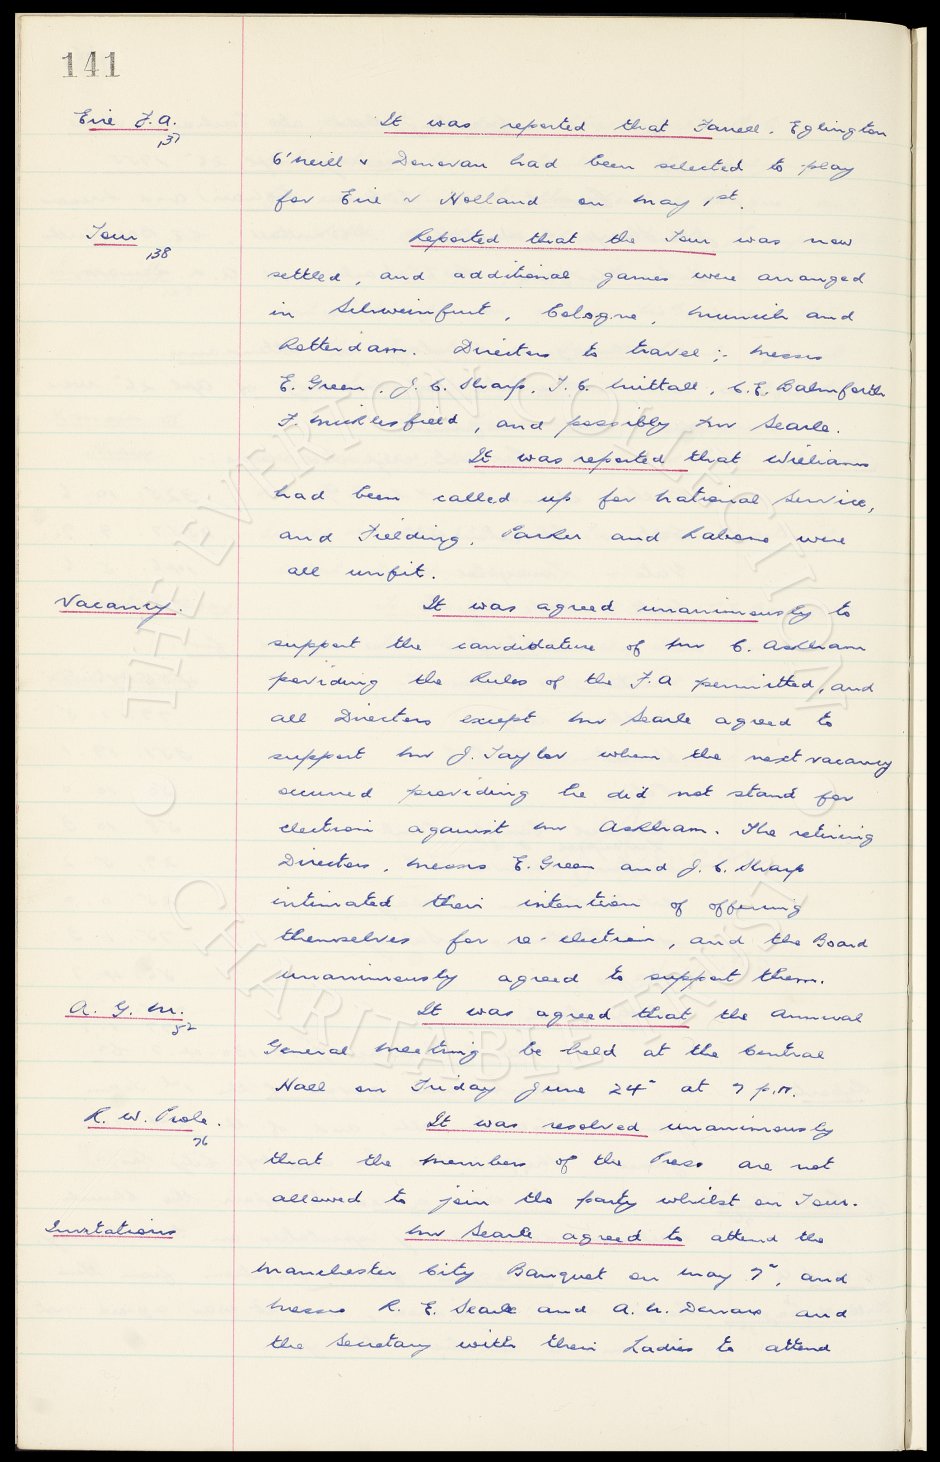 141
Eire F.A.
137
It was reported that Farrell, Eglington
O'Neill & Donovan had been selected to play
for Eire v Holland on May 1st.
Tour
138
Reported that the Tour was now
settled, and additional games were arranged
in Schweinfurt, Cologne, Munich and
Rotterdam. Directors to travel :- Messrs
E. Green, J. C. Sharp, T. C. Nuttall, C. E. Balmforth
F. Micklesfield, and possibly Mr Searle.
It was reported that Williams
had been called up for National Service,
and Fielding, Parker and Rabone were
all unfit.
Vacancy.
It was agreed unanimously to
support the candidature of Mr C. Askham
providing the Rules of the F.A permitted, and
all Directors except Mr Searle agreed to
support Mr J. Taylor when the next vacancy
occurred providing he did not stand for
election against Mr Askham. The retiring
Directors, Messrs E. Green and J. C. Sharp
intimated their intention of offering
themselves for re-election, and the Board
unanimously agreed to support them.
A. G. M.
52
It was agreed that the Annual
General Meeting be held at the Central
Hall on Friday June 24" at 7 p.m.
R. W. Prole.
76
It was resolved unanimously
that the members of the Press are not
allowed to join the party whilst on Tour.
Invitations
Mr Searle agreed to attend the
Manchester City Banquet on May 7", and
Messrs R. E. Searle and A. N. Denaro and
the Secretary with their Ladies to attend
THE EVERTON COLLECTION
CHARITABLE TRUST